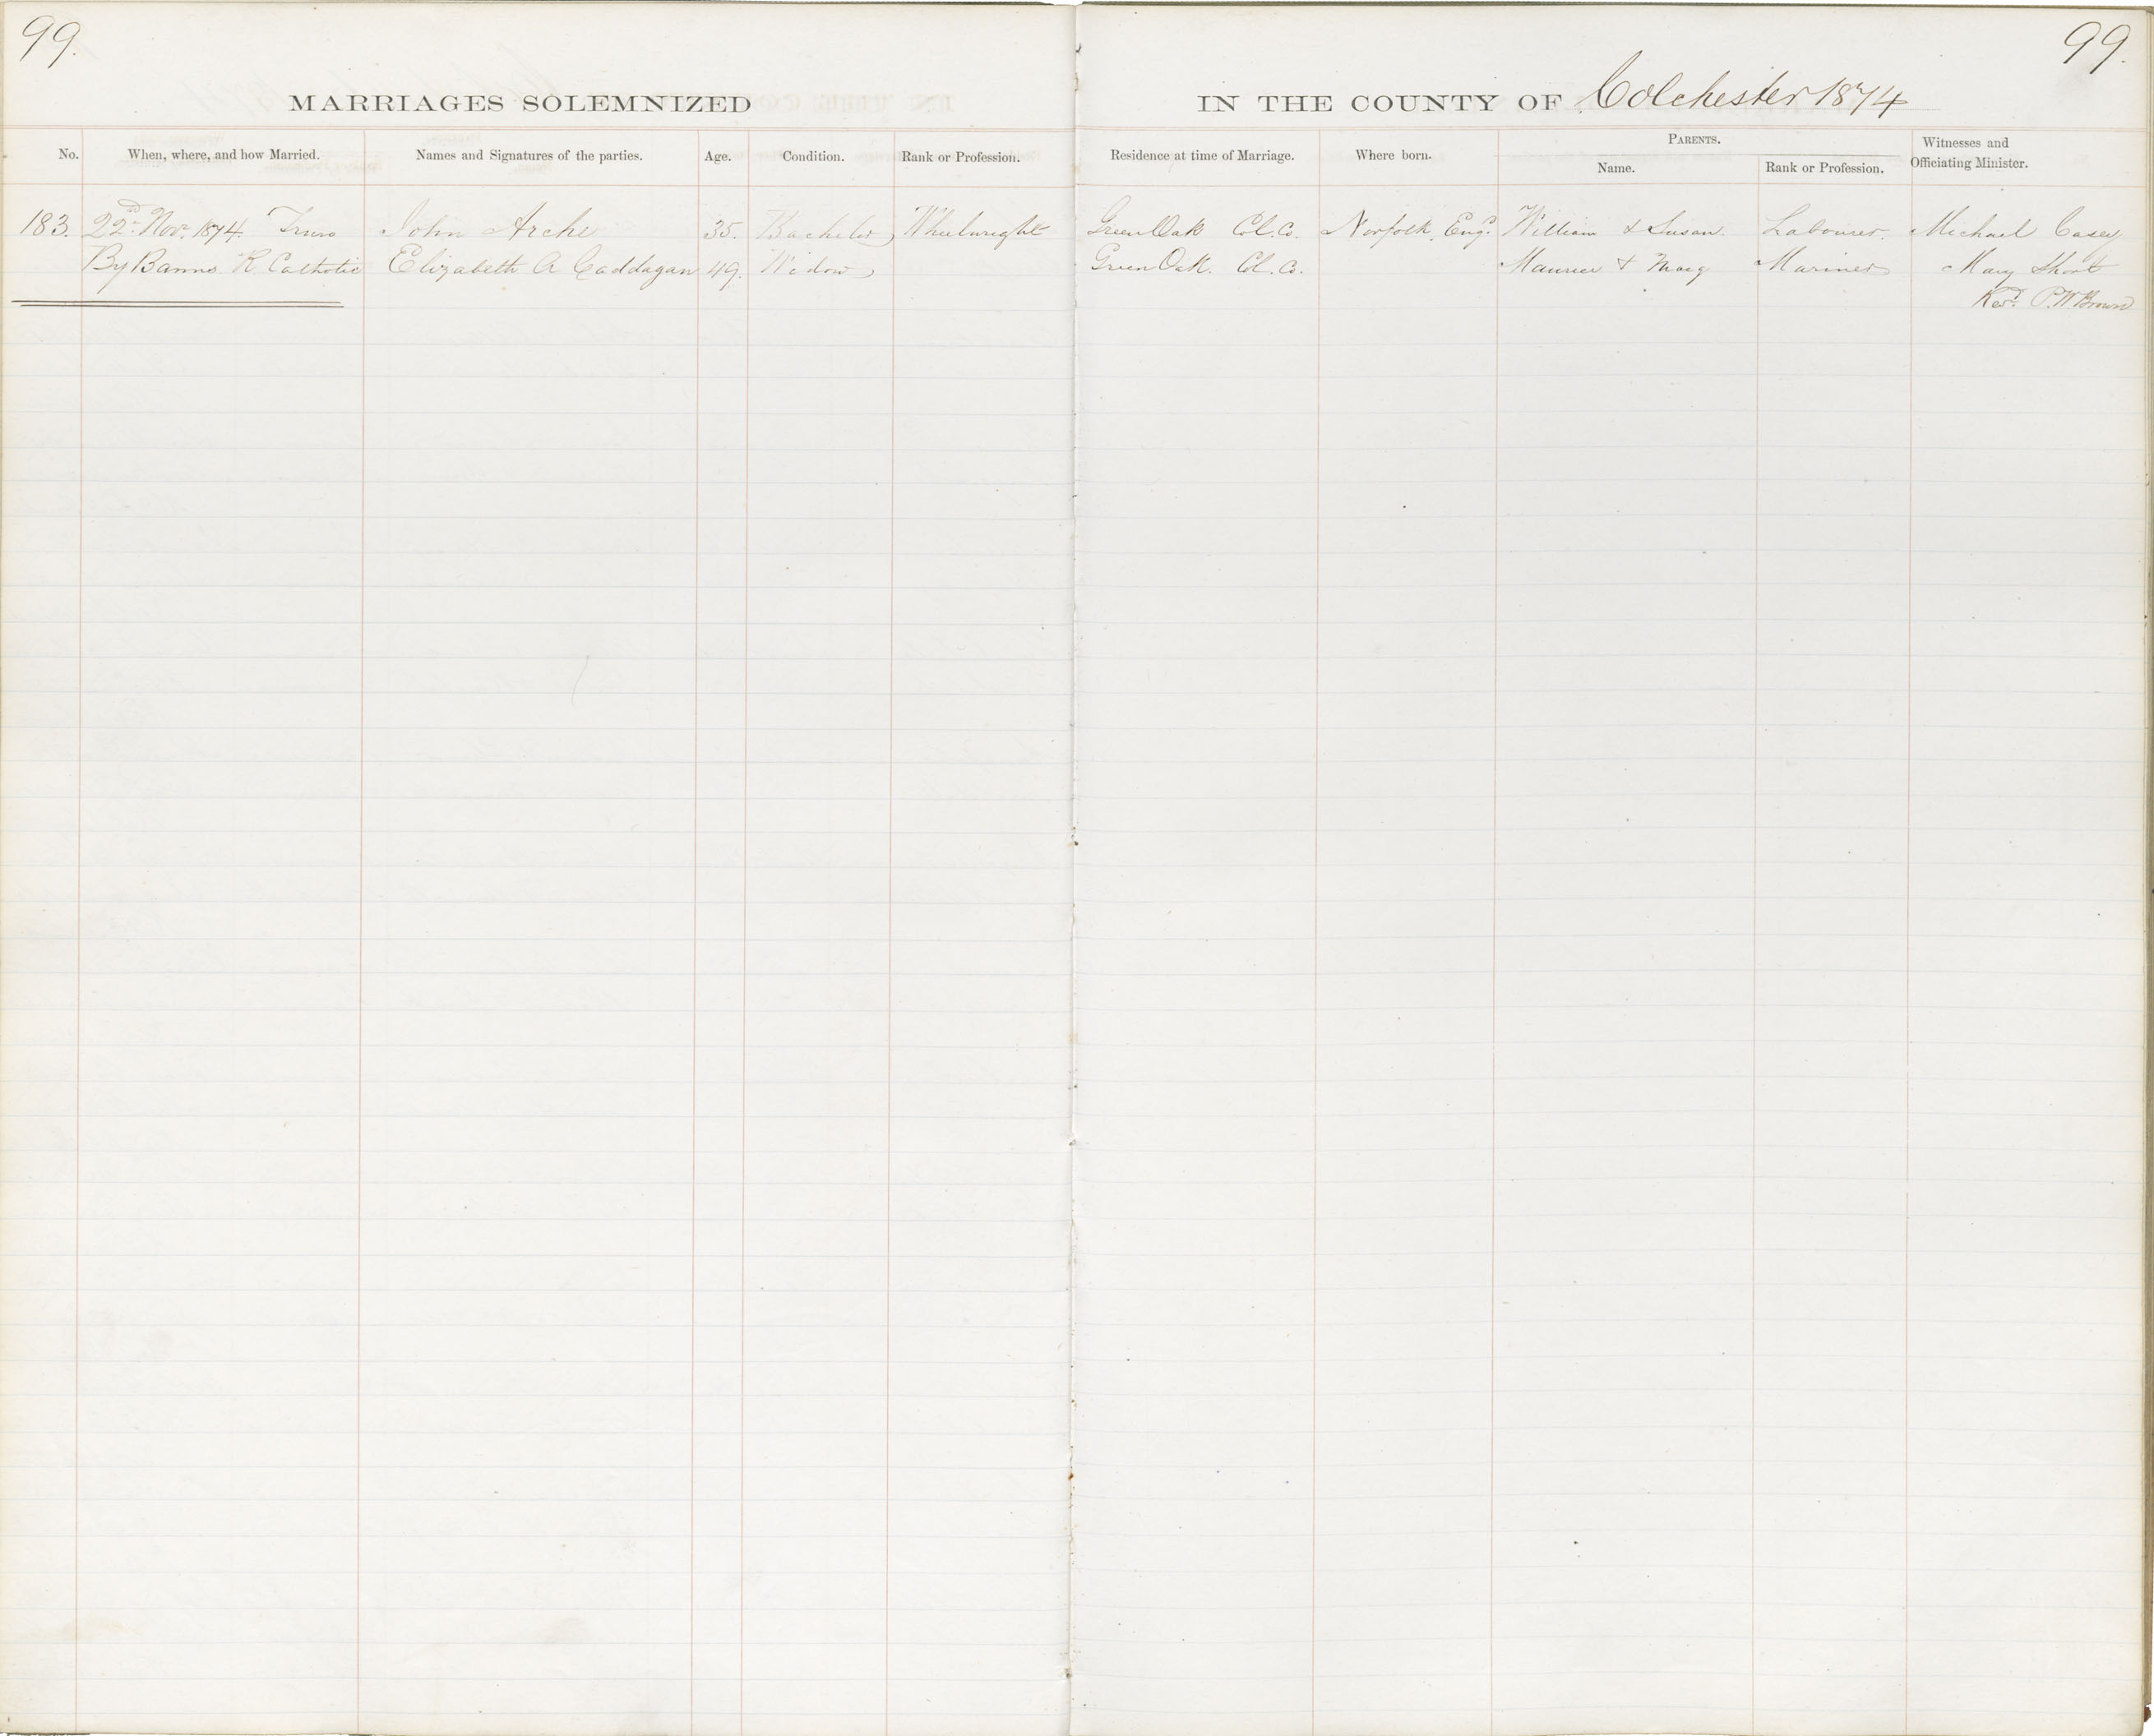 99.
99.
MARRIAGES SOLEMNIZED
IN THE COUNTY OF Colchester 1874
No.
When, where, and how Married.
Names and Signatures of the parties.
Age.
Condition.
Rank or Profession.
Residence at time of Marriage.
Where born.
PARENTS.
Name.
Rank or Profession.
Witnesses and
Officiating Minister.
183. 22nd Nov. 1874. Truro John Arche 35. Bachelor Wheelwright Green Oak Col. Co. Norfolk, Eng. William & Susan. Labourer. Michael Casey
By Banns R. Catholic Elizabeth A Caddagan 49. Widow Green Oak. Col. Co. Maurice & Mary Mariner Mary Short
Revd. P. W. Brown